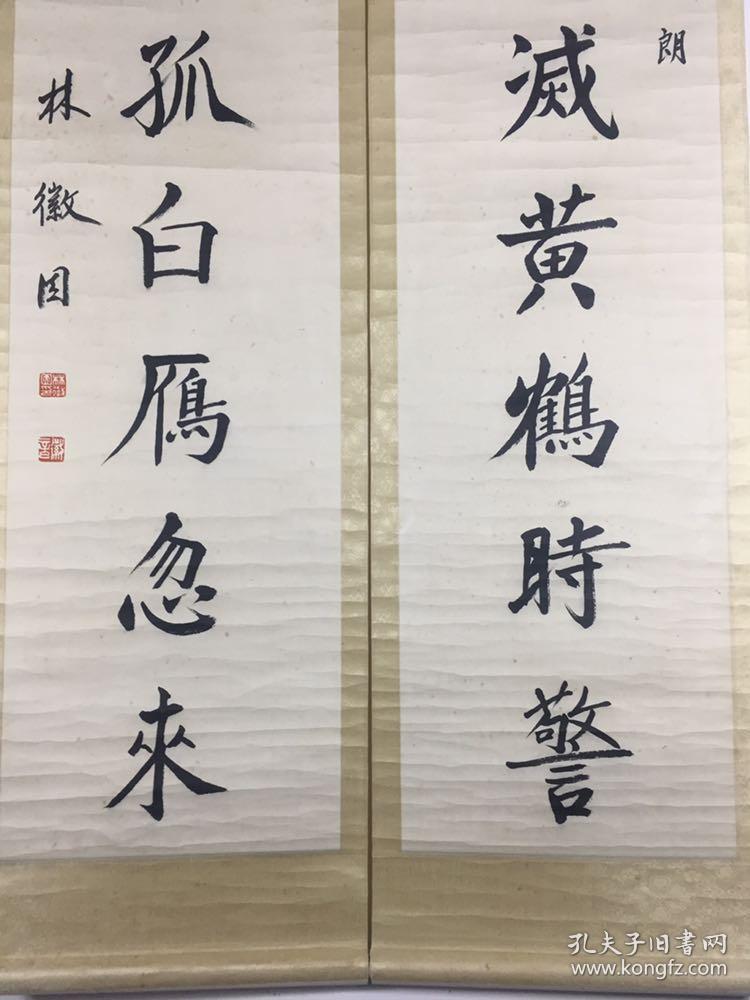 朗
滅黄鶴時警
孤白鴈忽來
林徽因
孔夫子旧書网
www.kongfz.com